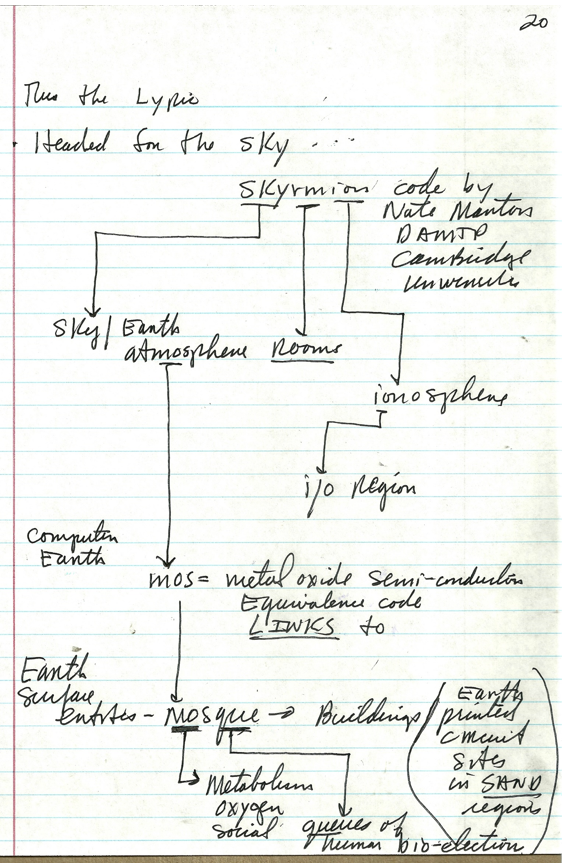 20
Thus the Lyric
Headed for the sky ....
SKyrmion code by
Nate Mantors
DAMTP
Cambridge
University
Sky / Earth
atmosphere
Rooms
ionosphere
i/o Region
Computer
Earth
mos = metal oxide semi-conductor
Equivalence code
LINKS to
Earth
surface
entites - mosque → Buildings /
Earth
printed
circuit
sites
in SAND
regions
Metabolism
oxygen
social
queues of
human bio-election